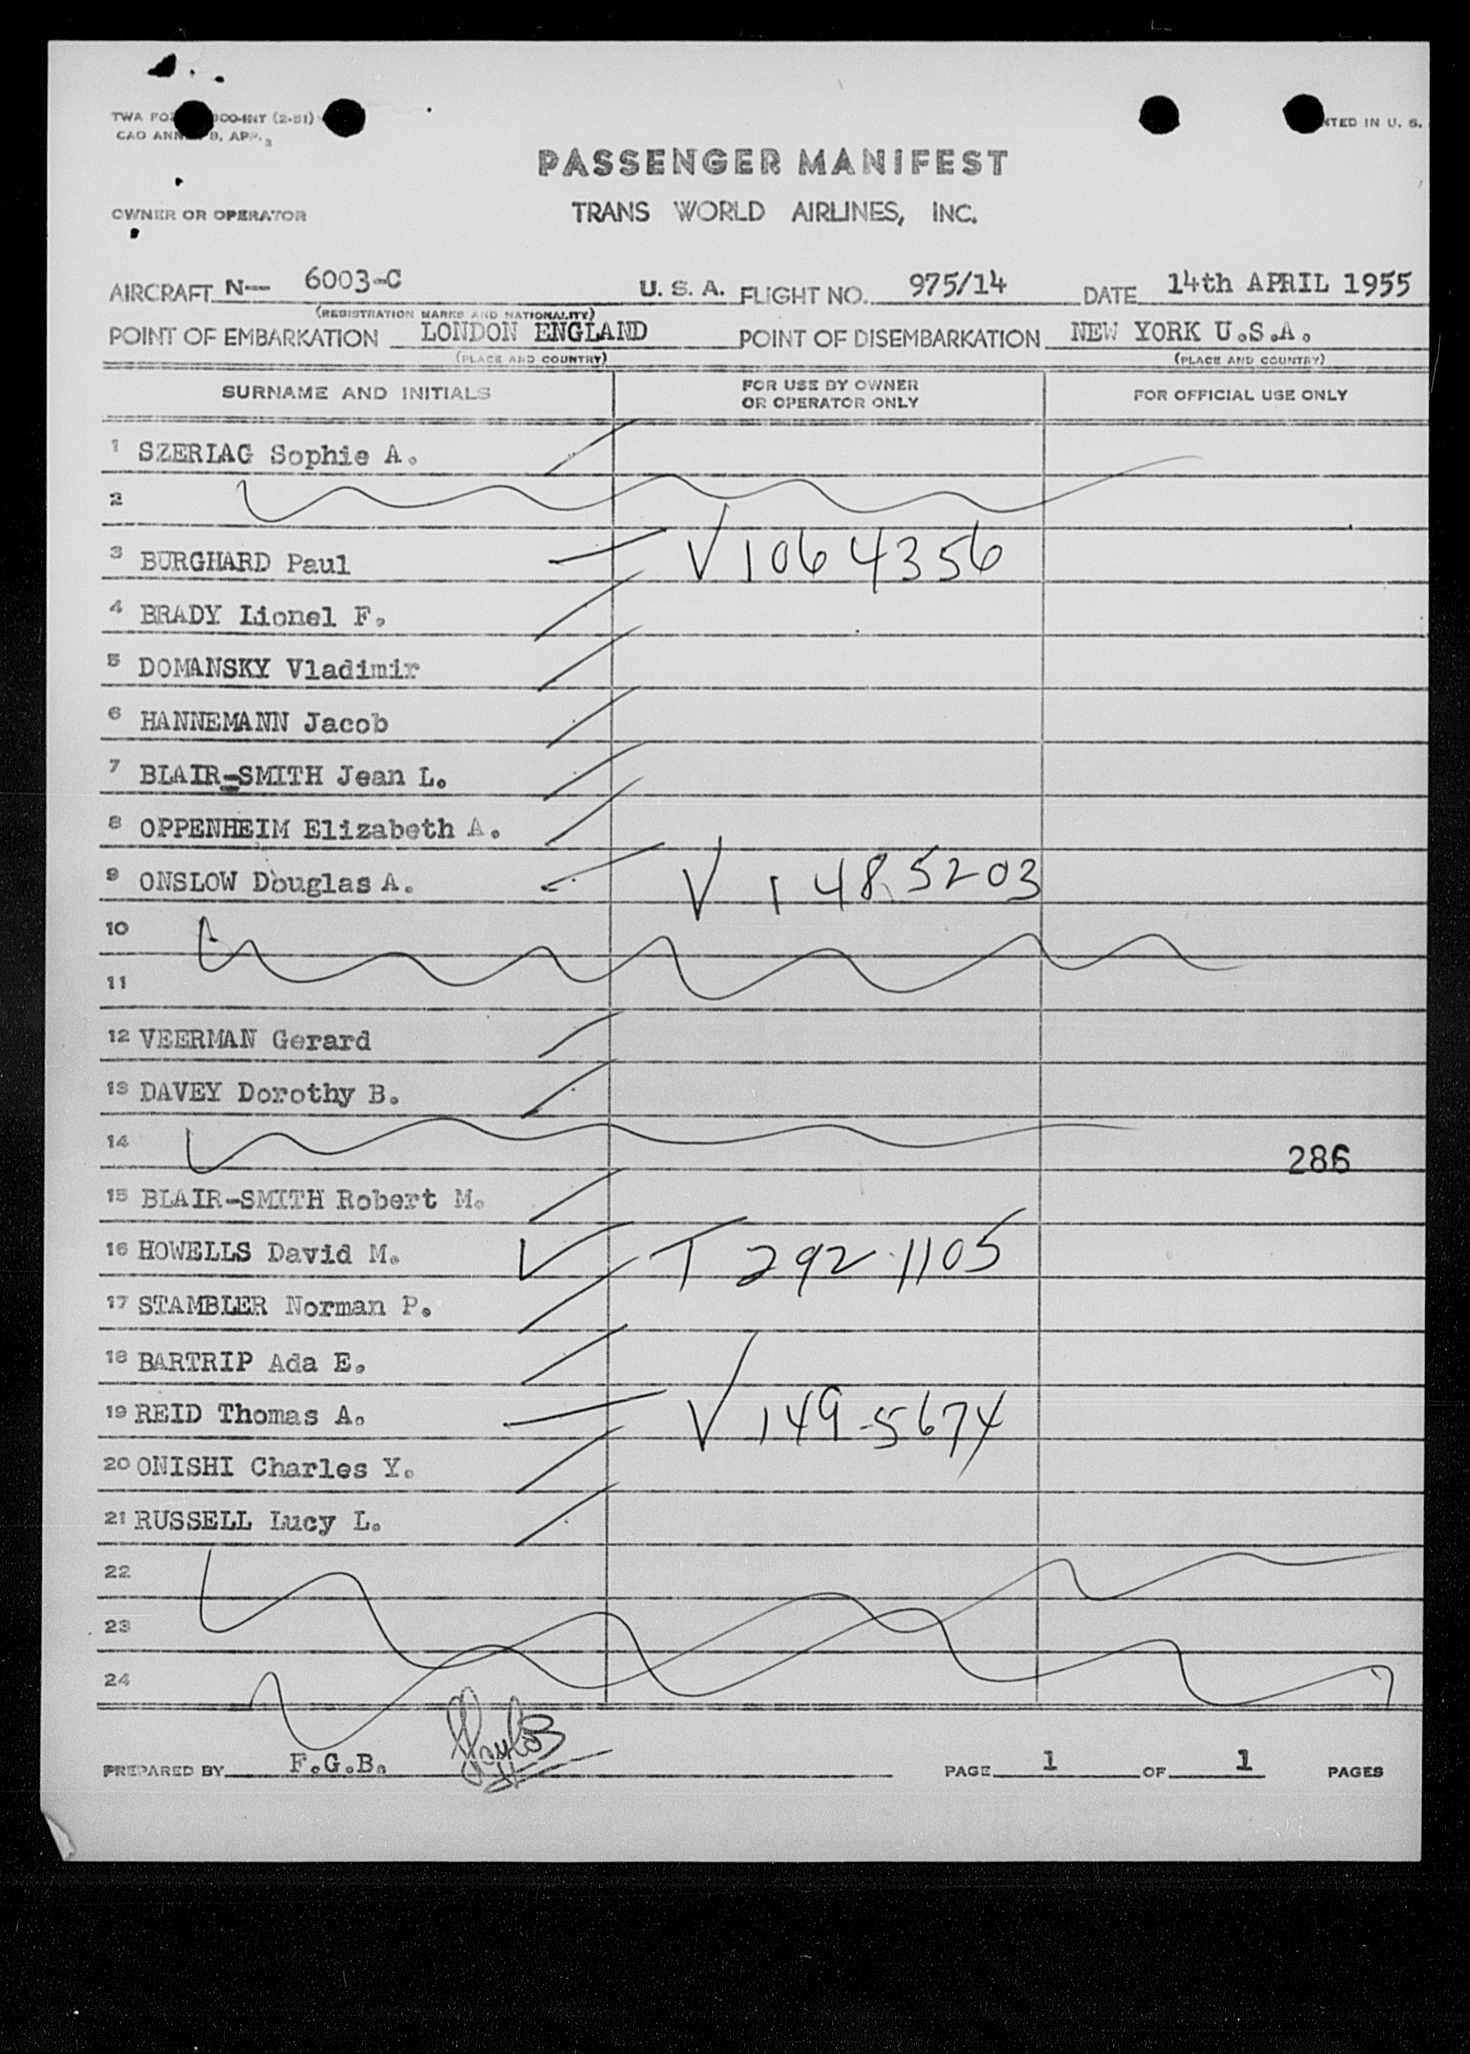 TWA FO 00-INT (2-51)
CAO ANN B, APP. 3
NTED IN U. S.
PASSENGER MANIFEST
OWNER OR OPERATOR
TRANS WORLD AIRLINES, INC.
AIRCRAFT N-- 6003-C U. S. A. FLIGHT NO. 975/14 DATE 14th APRIL 1955
(REGISTRATION MARKS AND NATIONALITY)
POINT OF EMBARKATION LONDON ENGLAND POINT OF DISEMBARKATION NEW YORK U.S.A.
(PLACE AND COUNTRY) (PLACE AND COUNTRY)
SURNAME AND INITIALS FOR USE BY OWNER OR OPERATOR ONLY FOR OFFICIAL USE ONLY
1 SZERLAG Sophie A.
2
3 BURGHARD Paul V 1064356
4 BRADY Lionel F.
5 DOMANSKY Vladimir
6 HANNEMANN Jacob
7 BLAIR-SMITH Jean L.
8 OPPENHEIM Elizabeth A.
9 ONSLOW Douglas A. V 1485203
10
11
12 VEERMAN Gerard
13 DAVEY Dorothy B.
14
286
15 BLAIR-SMITH Robert M.
16 HOWELLS David M. T 292-1105
17 STAMBLER Norman P.
18 BARTRIP Ada E.
19 REID Thomas A. V 149-5674
20 ONISHI Charles Y.
21 RUSSELL Lucy L.
22
23
24
PREPARED BY F.G.B. PAGE 1 OF 1 PAGES